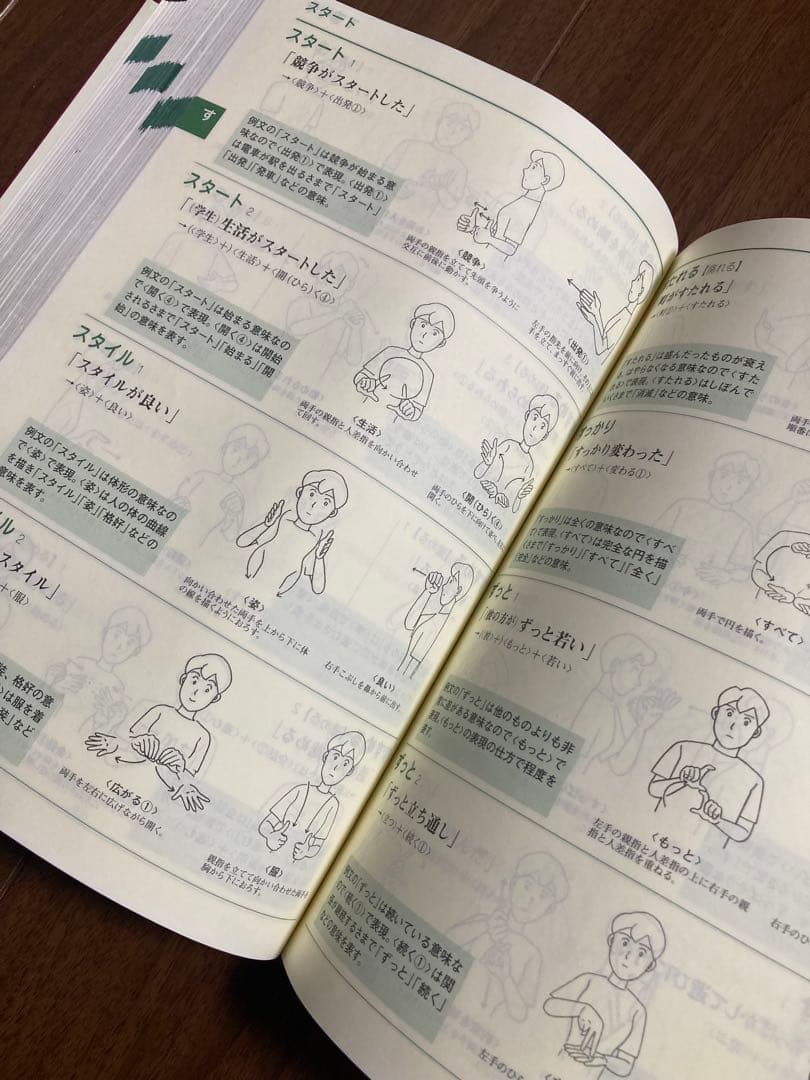 スタート
す
スタート 1
「競争がスタートした」
→〈競争〉+〈出発①〉
例文の「スタート」は競争が始まる意
味なので〈出発①〉で表現。〈出発①〉
は電車が駅を出るさまで「スタート」
「出発」「発車」などの意味。
〈競争〉
両手の親指を立てて先頭を争うように
交互に前後に動かす。
〈出発①〉
スタート 2
「(学生)生活がスタートした」
→(〈学生〉+)〈生活〉+〈開(ひら)く④〉
例文の「スタート」は始まる意味なの
で〈開く④〉で表現。〈開く④〉は開始
されるさまで「スタート」「始まる」「開
始」の意味を表す。
〈生活〉
両手の親指と人差指を向かい合わせ
て回す。
〈開(ひら)く④〉
両手のひらを下に向けて並べ、左右に
開く。
スタイル 1
「スタイルが良い」
→〈姿〉+〈良い〉
例文の「スタイル」は体形の意味なの
で〈姿〉で表現。〈姿〉は人の体の曲線
を描き「スタイル」「姿」「格好」などの
意味を表す。
〈姿〉
向かい合わせた両手を上から下に体
の線を描くようにおろす。
〈良い〉
右手こぶしを鼻から前に出す。
ル 2
スタイル」
+〈服〉
味、格好の意
〉は服を着
装」など
〈広がる①〉
両手を左右に広げながら開く。
〈服〉
親指を立てて向かい合わせた両手を
胸から下におろす。
すたれる【廃れる】
町がすたれる」
+〈すたれる〉
「すたれる」は盛んだったものが衰え
る、はやらなくなる意味なので〈すた
れる〉で表現。〈すたれる〉はしぼんで
いくさまで「消滅」などの意味。
両手
順番に
すっかり
「すっかり変わった」
→〈すべて〉+〈変わる①〉
「すっかり」は全くの意味なので〈すべ
て〉で表現。〈すべて〉は完全な円を描
くさまで「すっかり」「すべて」「全く」
「完全」などの意味。
〈すべて〉
両手で円を描く。
ずっと 1
「(彼の方が)ずっと若い」
→〈彼〉+〈もっと〉+〈若い〉
例文の「ずっと」は他のものよりも非
常に差がある意味なので〈もっと〉で
表現。〈もっと〉の表現の仕方で程度を
表す。
〈もっと〉
左手の親指と人差指の上に右手の親
指と人差指を重ねる。
右手のひ
ずっと 2
「ずっと立ち通し」
→〈立つ〉+〈続く①〉
例文の「ずっと」は続いている意味な
ので〈続く①〉で表現。〈続く①〉は関
係が継続するさまで「ずっと」「続く」
などの意味を表す。
左手のひ